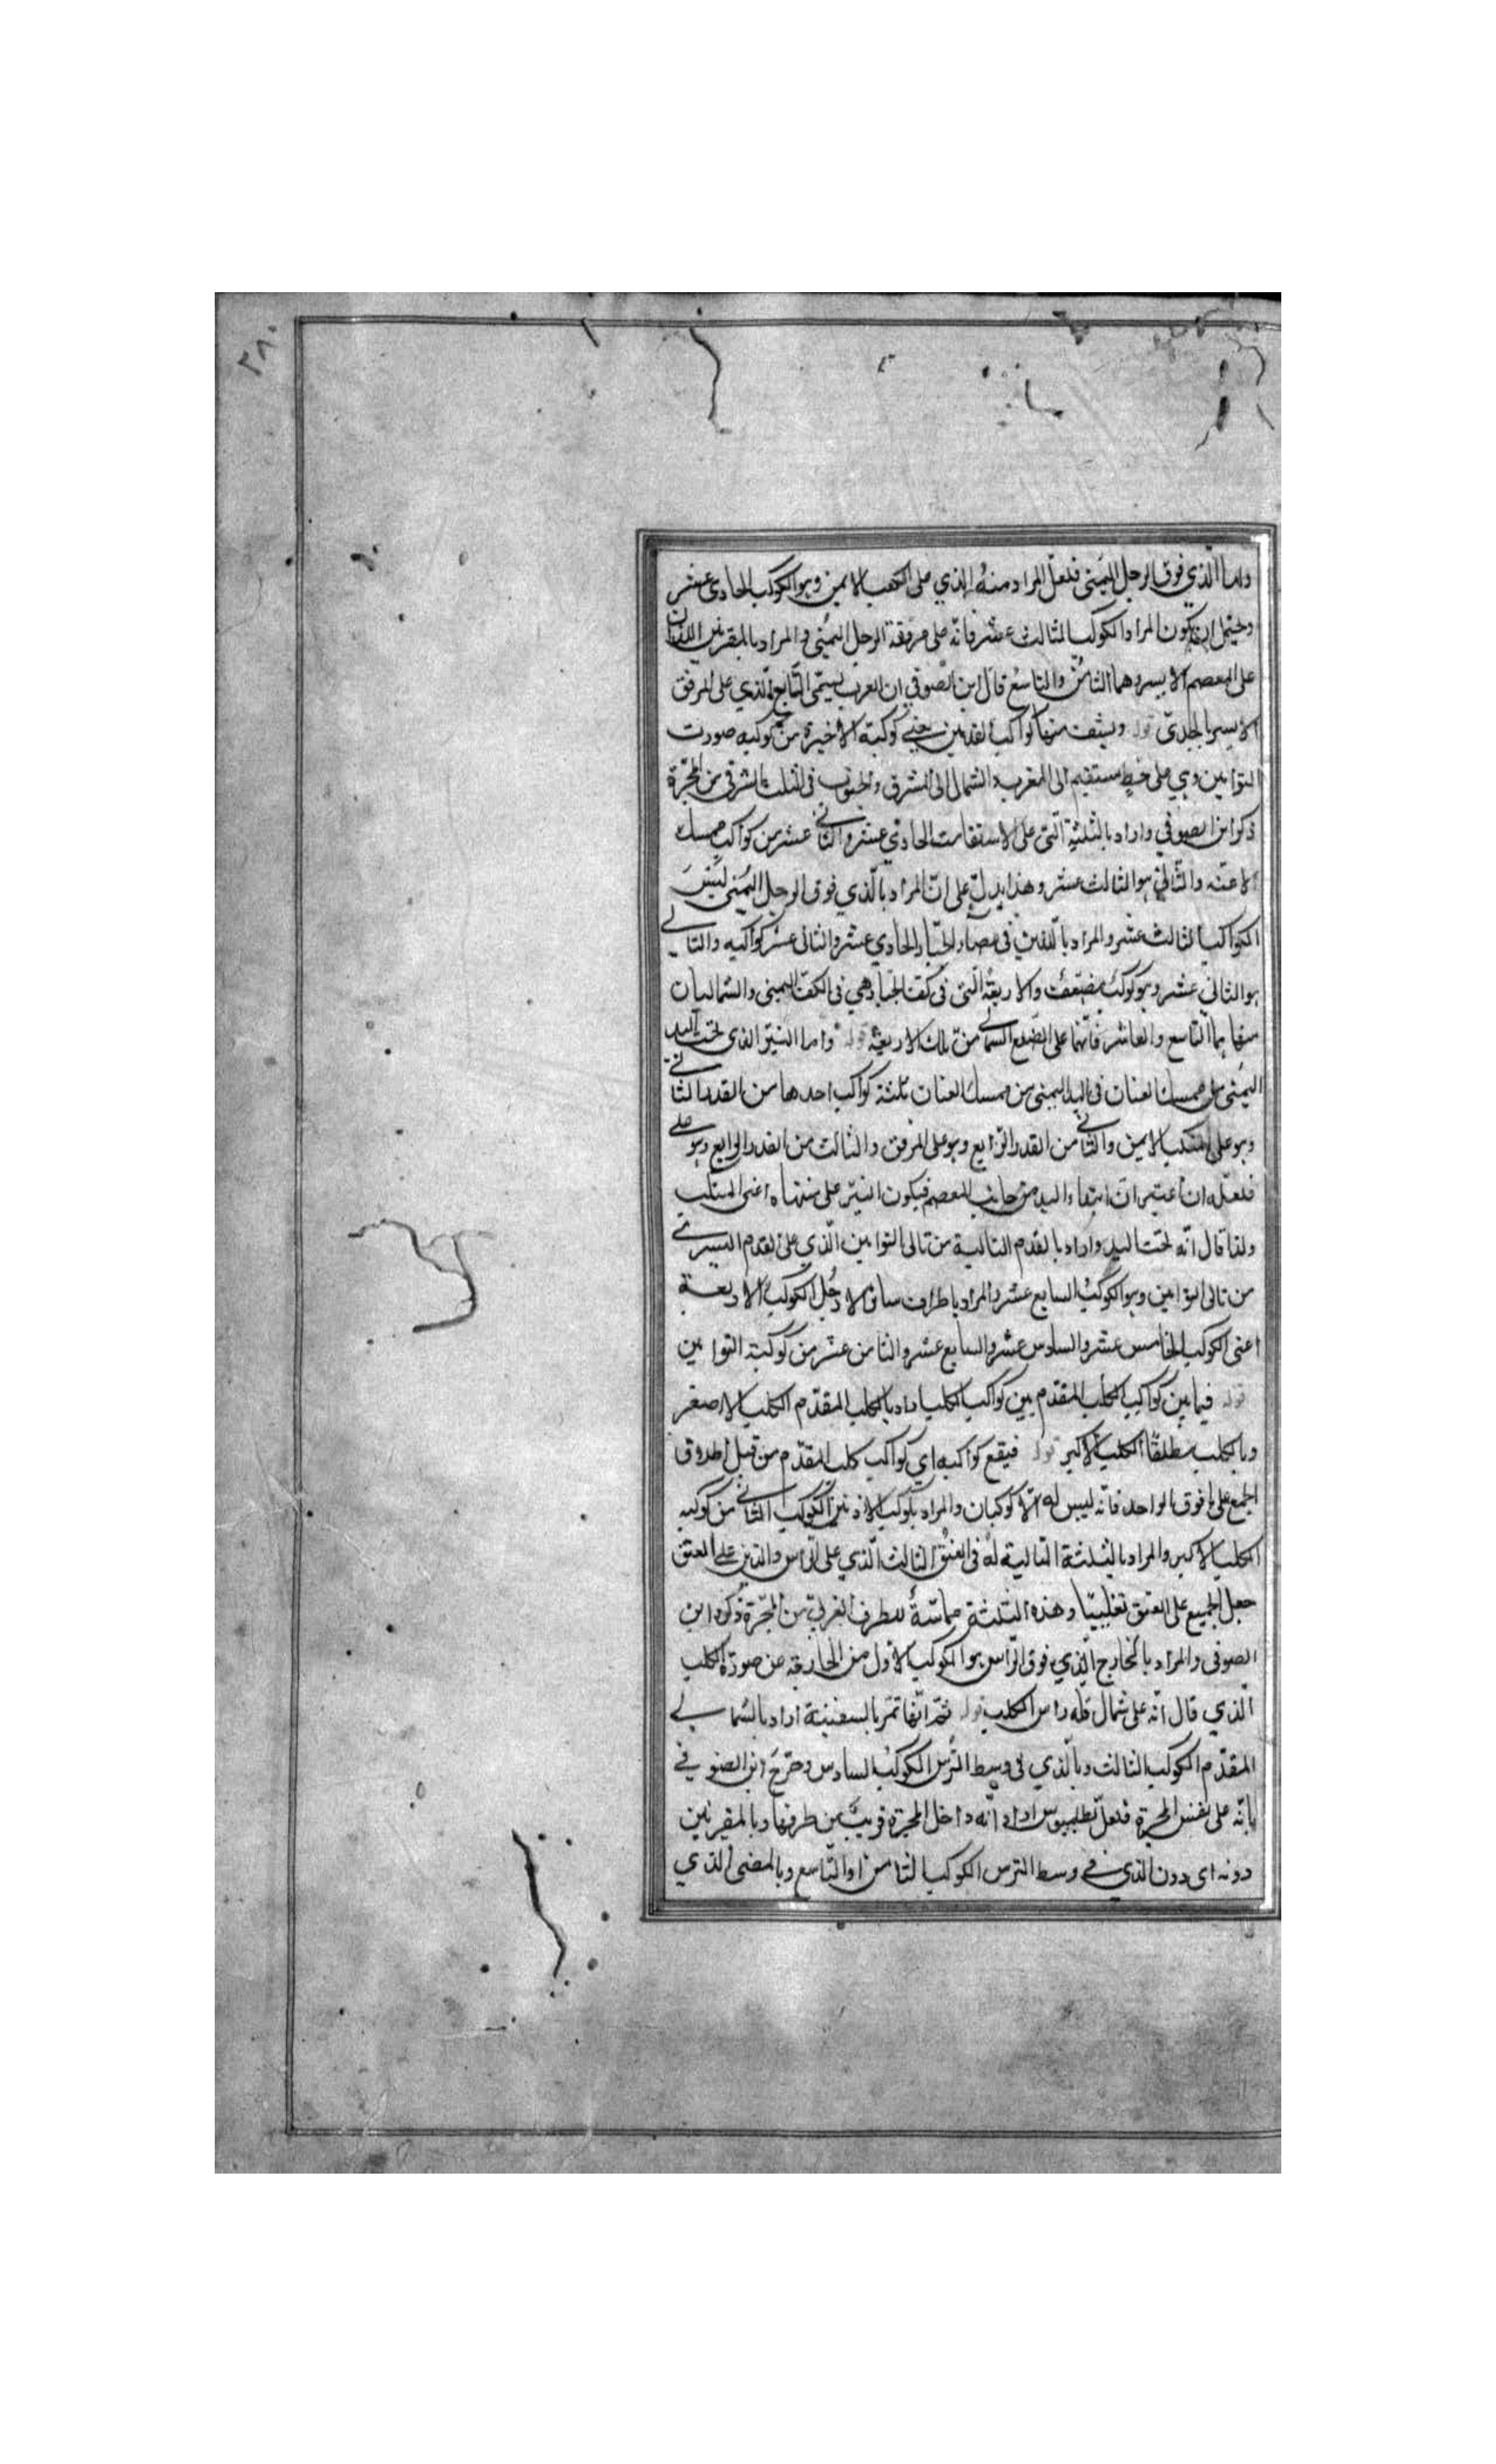 ٢٨٠
واما الّذي فوق الرجل اليمنى فلعلّ المراد منه الذي على الكعب الايمن وهو الكوكب الحادى عشر
ويحتمل ان يكون المراد الكوكب الثالث عشر فانه على مرفقة الرجل اليمنى والمراد بالمقترنين اللذان
على المعصم الايسر وهما الثامن والتاسع قال ابن الصوفي ان العرب يسمّى التابع الّذي على المرفق
الايسر بالجدى قوله وبشفت منها كواكب القدمين يعني كوكبة الاخيرة من كوكبه صورت
التوامين وهي على خط مستقيم الى المغرب والشمال الى المشرق والجنوب في الثلث الشرقى من المجرّة
ذكر ابن الصوفي واراد بالثلثة الّتي على الاستقامت الحادي عشر والثاني عشر من كواكب ممسك
الاعنه والثاني هو الثالث عشر وهذا يدلّ على انّ المراد بالّذي فوق الرجل اليمنى ليس
الكواكب الثالث عشر والمراد بالّذين في عصاء الجبّار الحادي عشر والثانى عشر كواكبه والتالي
هو الثاني عشر وهو كوكب مضعّف والاربعة الّتى فى كف الجبّار هي في الكف اليمنى والشماليان
منها هما التاسع والعاشر فانّهما على الضلع الشمالي من تلك الاربعة قوله واما النيّر الذى تحت اليد
اليمنى من ممسك العنان في اليد اليمنى من ممسك العنان ثلثة كواكب احدها من القدر الثاني
وهو على المنكب الايمن والثاني من القدر الرّابع وهو على المرفق والثالث من القدر الرابع وهو على
فلعلّه ان اعتبر انّ ابتداء اليد من جانب المعصم فيكون النيّر على منتهاه اعنى المنكب
ولذا قال انّه تحت اليد واراد بالقدم التالية من تالى التوامين الّذي على القدم اليسرى
من تالى التوامين وهو الكوكب السابع عشر والمراد باطراف ساق الارجل الكوكب الاربعة
اعنى الكوكب الخامس عشر والسادس عشر والسابع عشر والثامن عشر من كوكبة التوامين
قوله فيما بين كواكب الكلب المقدّم بين كواكب الكلب اراد بالكلب المقدّم الكلب الاصغر
وبالكلب مطلقًا الكلب الاكبر قوله فيقع كواكبه اي كواكب كلب المقدّم من قبيل اطلاق
الجمع على فوق الواحد فانّه ليس له الّا كوكبان والمراد بكوكب الاذنين الكوكب الثاني من كوكبه
الكلب الاكبر والمراد بالثلثة التالية له في العنق الثالث الّذي على الرّاس والّذين على العنق
جعل الجميع على العنق تغليبًا وهذه الثلثة مماسّة للطرف الغربيّ من المجرّة ذكره ابن
الصوفى والمراد بالخارج الّذي فوق الرّاس هو الكوكب الاوّل من الخارجه عن صورة الكلب
الّذي قال انّه على شمال قلّه راس الكلب قوله ثمّ انّها تمرّ بالسفينة اراد بالشمالي
المقدّم الكوكب الثالث وبالّذي في وسط التُرس الكوكب السادس وصرّح ابن الصوفي
بانّه على نفس المجرة فلعلّ بطلميوس اراد انّه داخل المجرّة قريب من طرفها وبالمقترنين
دونه اى دون الذي في وسط الترس الكوكب الثامن والتاسع وبالمضئ الذي